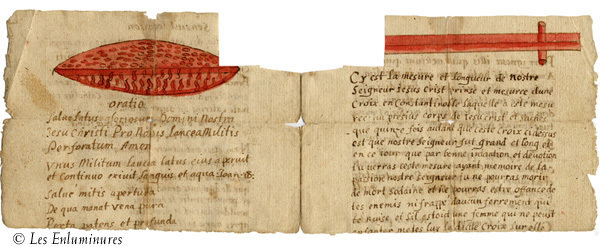 oratio
Salve Latus gloriosum Domini Nostri
Jesu Christi Pro Nobis Lancea Militis
Perforatum Amen
Unus Militum lancea latus eius aperuit
et continuo exivit Sanguis et aqua Ioan
Salve mitis apertura
De qua manat vena pura
Porta patens et profunda
Cy est La mesure et Longueur de nostre
Seigneur Jesus Crist prinse et mesuree dune
Croix en Constantinoble laquelle a este
au pretieus corps de Jesucrist et sachez
que quinze fois autant que ceste Croix cidessus
est que nostre Seigneur fut grand et long et
en ce jour que par bonne intention et devotion
tu verras ceste mesure ayant memoire de la
passion nostre Seigneur tu ne pourras morir
de mort Sodaine et ne pourras estre offancé de
tes enemis ni frappé daucun ferrement qui
te nuise et sil estoit une femme qui ne peust
enfanter mettes lui la dicte Croix sur elle
© Les Enluminures